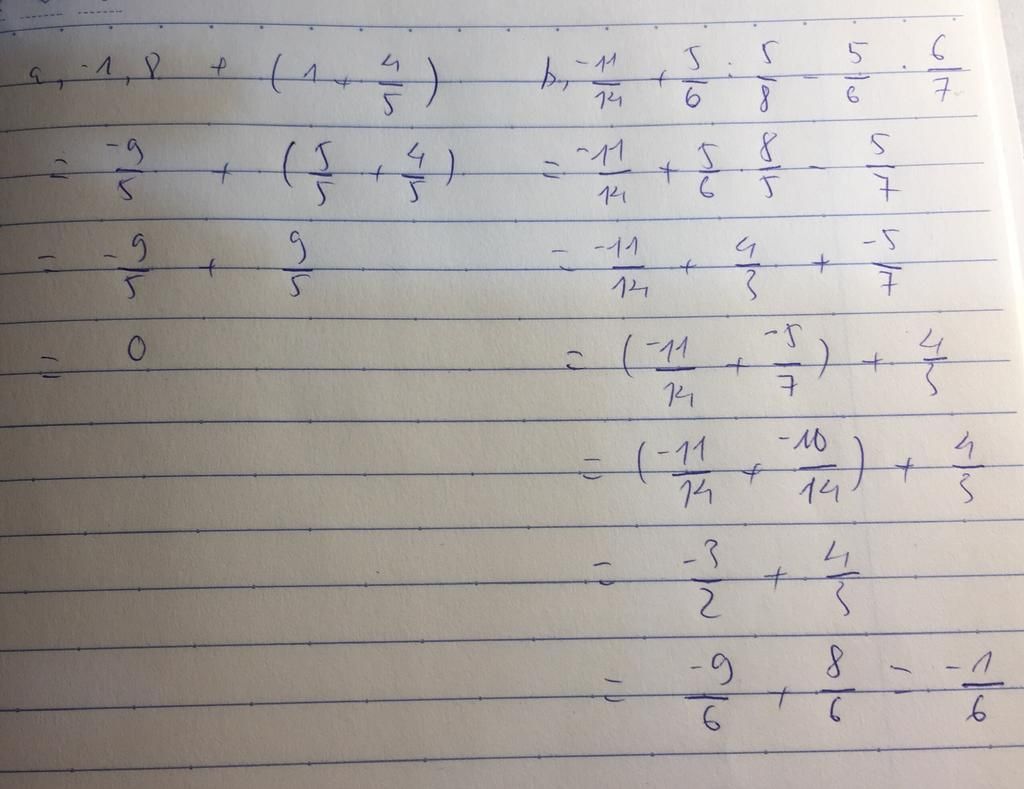 a, -1,8 + (1 + 4/5)
= -9/5 + (5/5 + 4/5)
= -9/5 + 9/5
= 0
b, -11/14 + 5/6 : 5/8 - 5/6 . 6/7
= -11/14 + 5/6 . 8/5 - 5/7
= -11/14 + 4/3 + -5/7
= (-11/14 + -5/7) + 4/3
= (-11/14 + -10/14) + 4/3
= -3/2 + 4/3
= -9/6 + 8/6 = -1/6